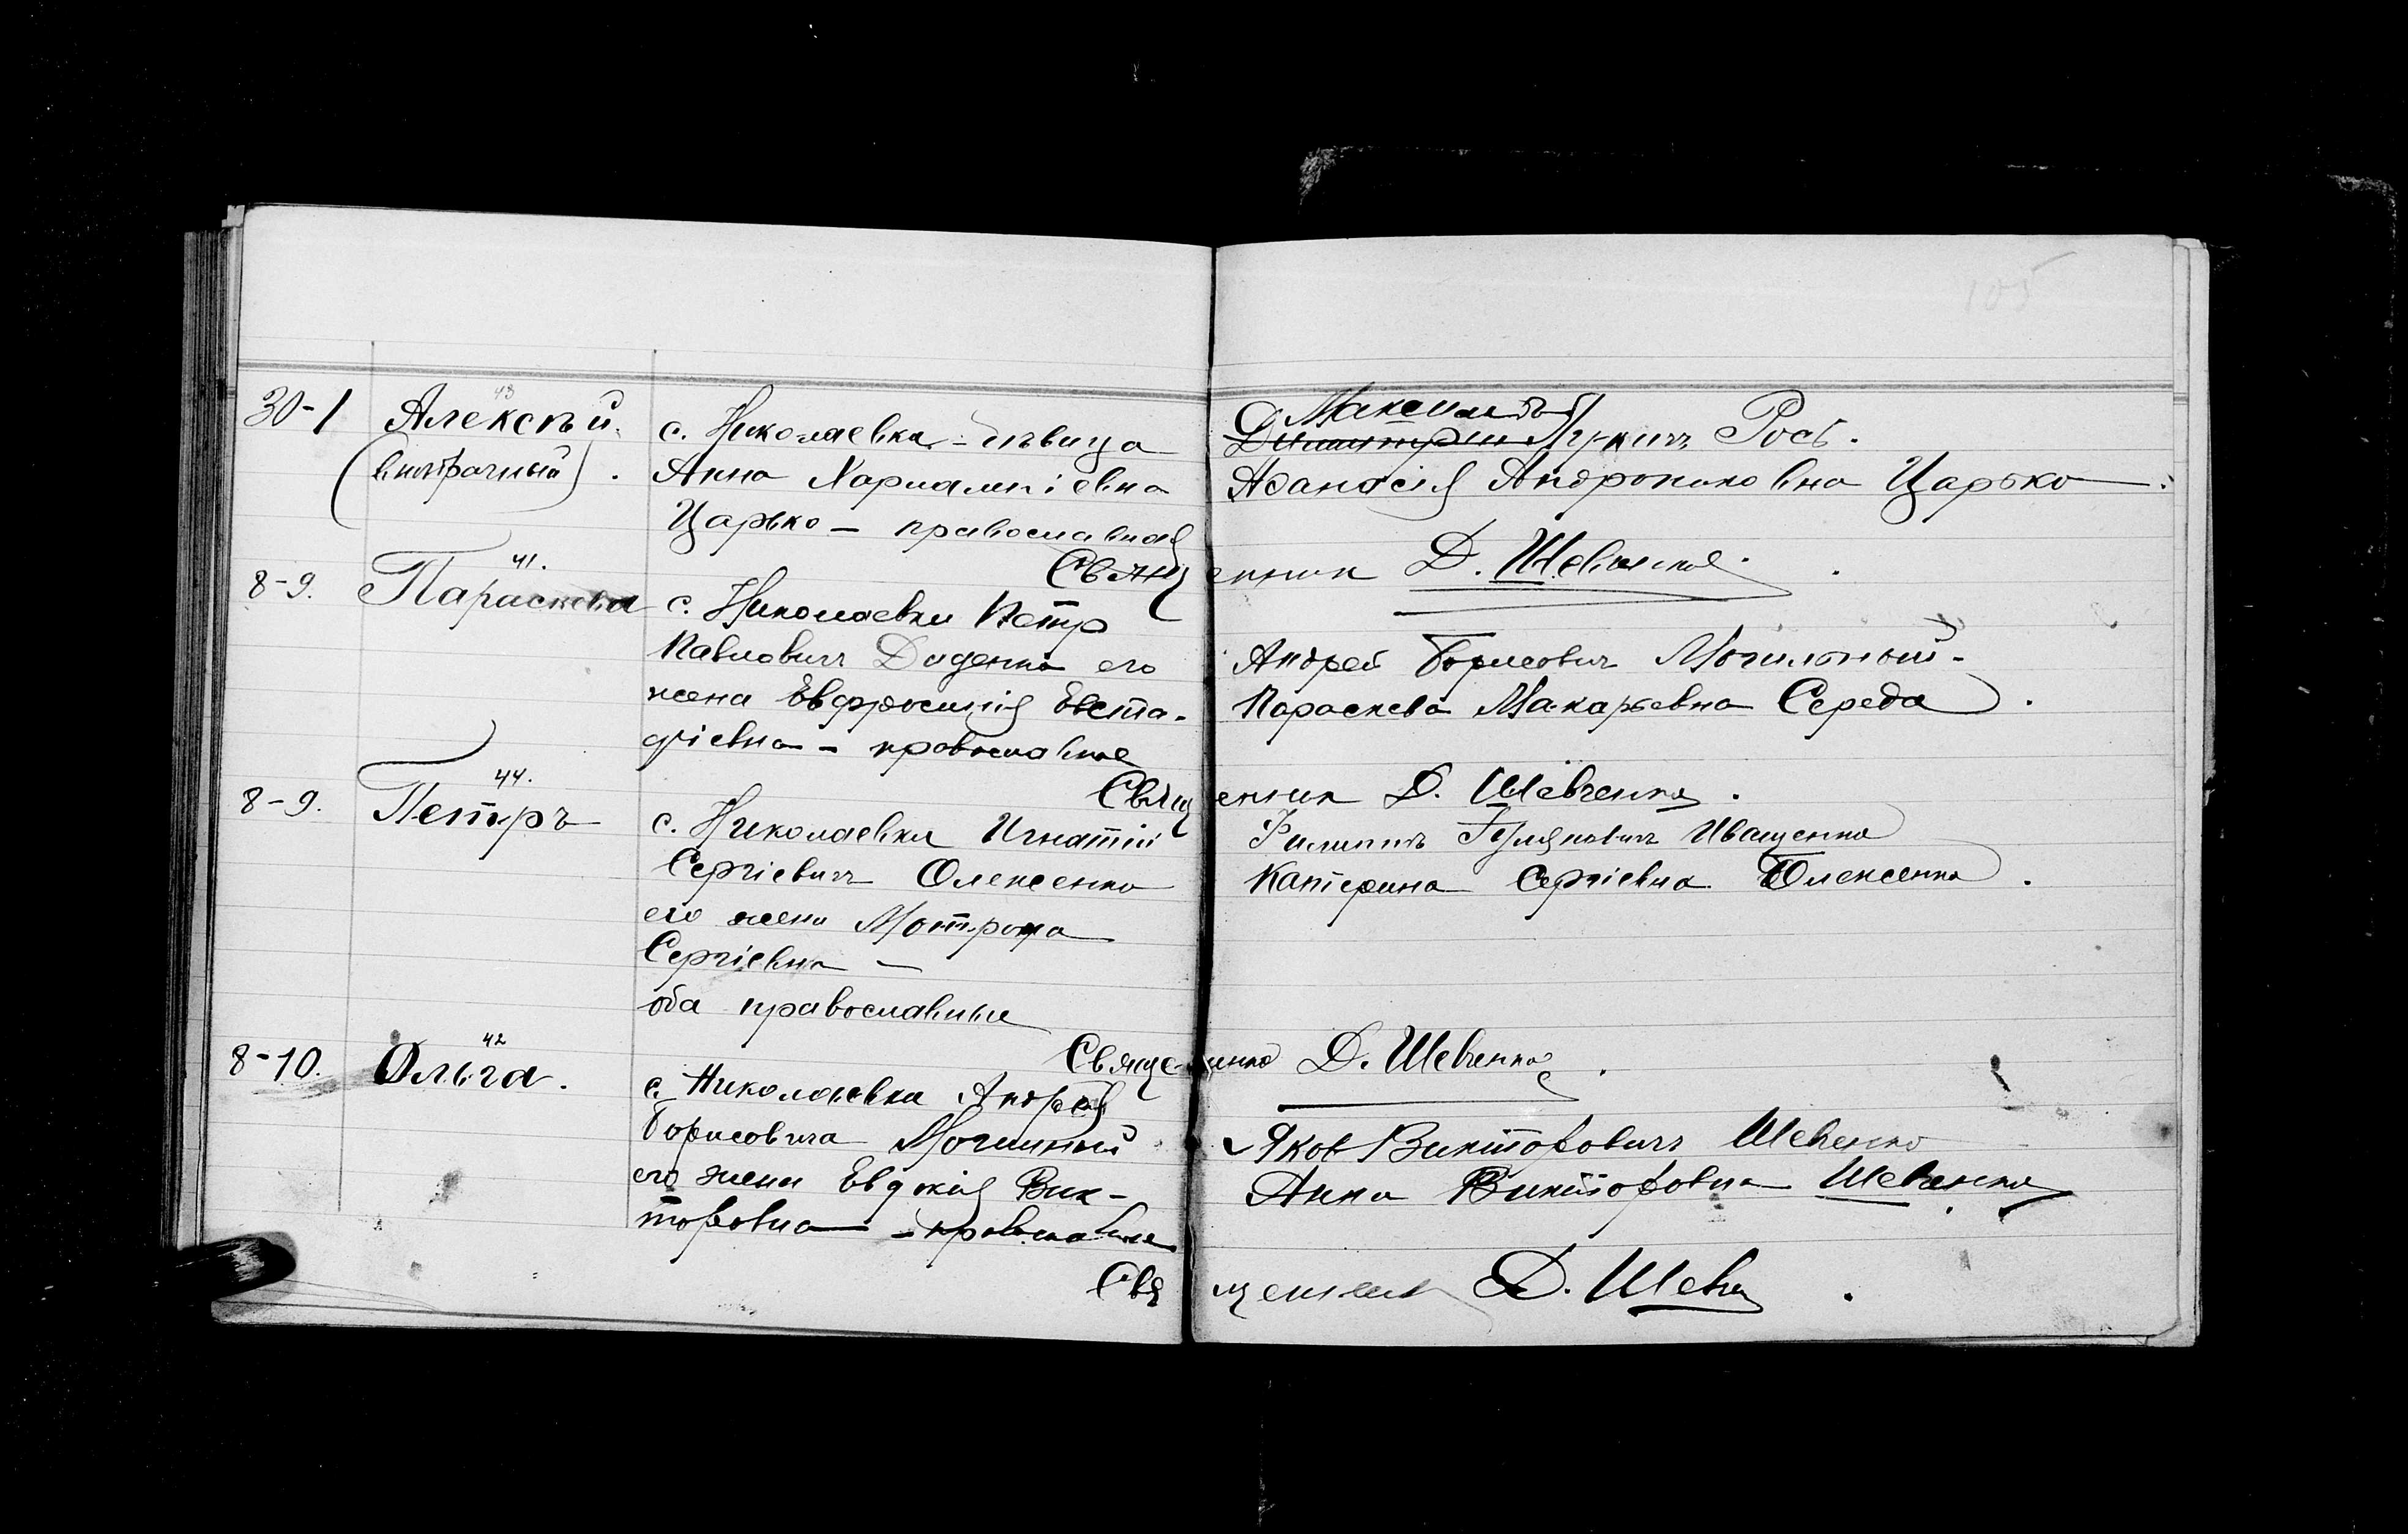 105
43
30-1 Алексѣй с. Николаевка - дѣвица
(внебрачный). Анна Харлампіевна
Царько - православная
Максимъ
Димитрій Лукичъ Рось.
Афанасія Андрониковна Царько.
Священник Д. Шевченко.
41.
8-9. Параскева с. Николаевки Петр
Павлович Диденко его
жена Евфросинія Евста-
фіевна - православные
Андрей Борисович Могильный -
Параскева Макарьевна Середа.
Священник Д. Шевченко.
44.
8-9. Петръ с. Николаевки Игнатій
Сергіевич Олексенко
его жена Мотрона
Сергіевна -
оба православные
Филиппъ Иващенко
Катерина Сергіевна Олексенко.
Священник Д. Шевченко.
42
8-10. Ольга. с. Николаевки Андрей
Борисовича Могильный
его жена Евдокія Вик-
торовна - православные
Яков Викторович Шевченко
Анна Викторовна Шевченко.
Священник Д. Шевч.